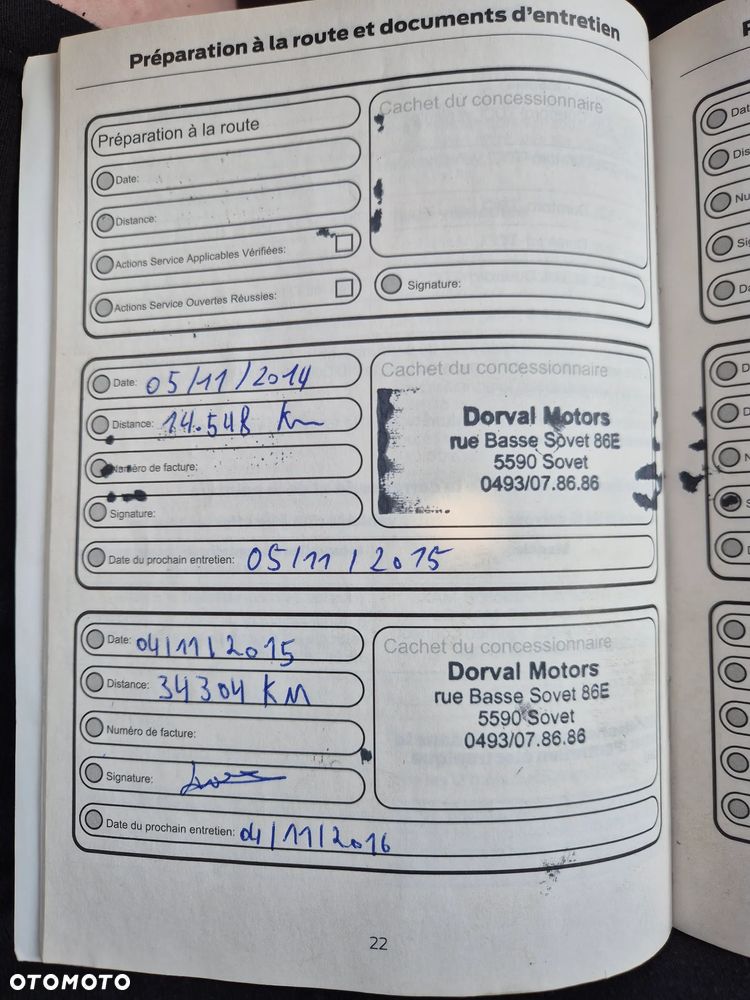 Préparation à la route et documents d'entretien
Préparation à la route
Date:
Distance:
Actions Service Applicables Vérifiées:
Actions Service Ouvertes Réussies:
Cachet du concessionnaire
Signature:
Date: 05/11/2014
Distance: 14.548 Km
Numéro de facture:
Signature:
Cachet du concessionnaire
Dorval Motors
rue Basse Sovet 86E
5590 Sovet
0493/07.86.86
Date du prochain entretien: 05/11/2015
Date: 04/11/2015
Distance: 34304 KM
Numéro de facture:
Signature:
Cachet du concessionnaire
Dorval Motors
rue Basse Sovet 86E
5590 Sovet
0493/07.86.86
Date du prochain entretien: 04/11/2016
22
OTOMOTO